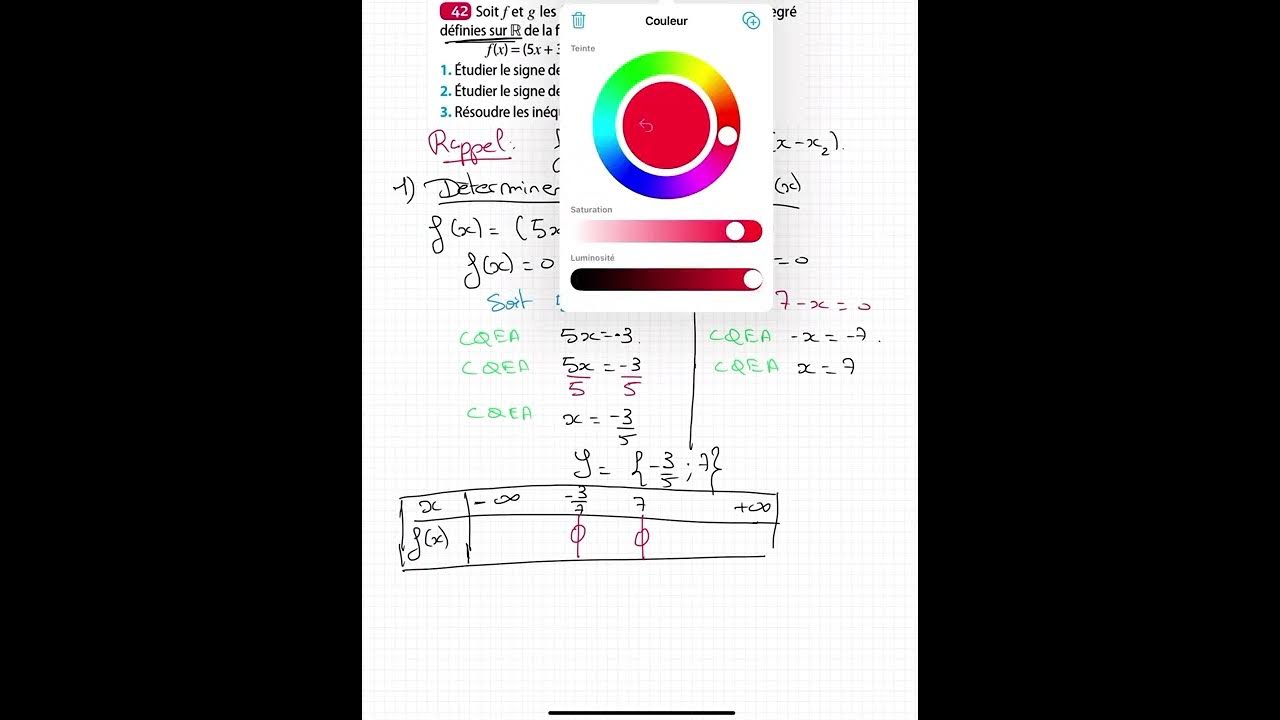 42 Soit f et g les
définies sur ℝ de la f
f(x) = (5x + 3
1. Étudier le signe de
2. Étudier le signe de
3. Résoudre les inéq
Couleur
Teinte
Saturation
Luminosité
egré
Rappel:
(x-x₂).
1) Determiner
(x)
f(x) = (5x
f(x) = 0
= 0
Soit
7-x = 0
CQEA 5x = -3. CQEA -x = -7.
CQEA 5x/5 = -3/5 CQEA x = 7
CQEA x = -3/5
S = {-3/5 ; 7}
x -∞ -3/7 7 +∞
f(x) 0 0